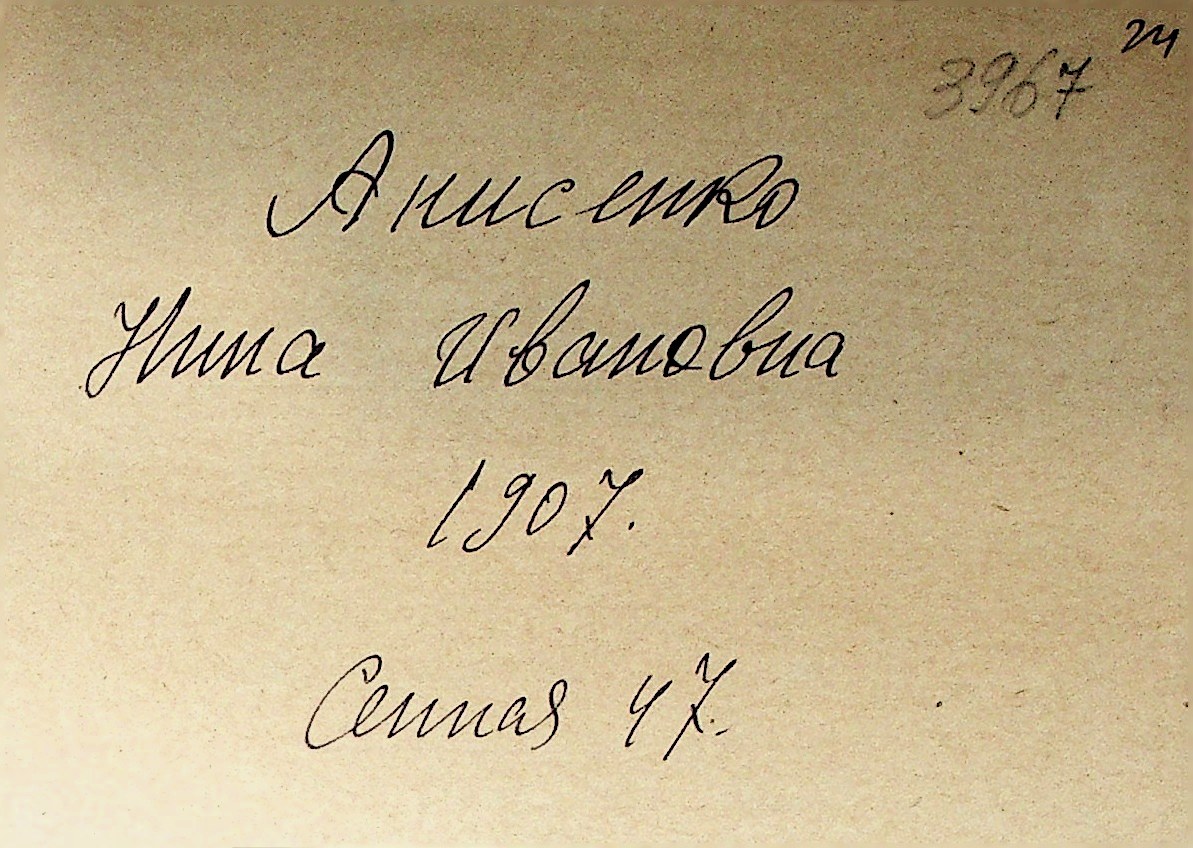 24
3967
Анисенко
Нина Ивановна
1907.
Сенная 47.